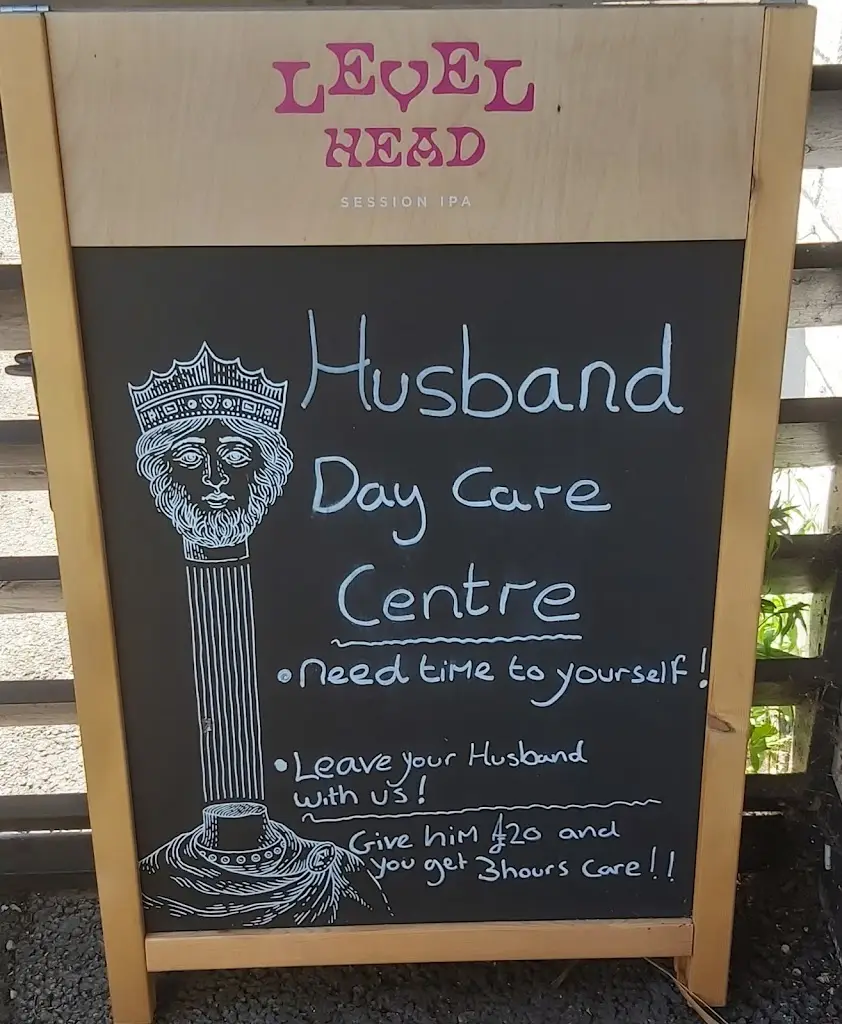 LEVEL
HEAD
SESSION IPA
Husband
Day Care
Centre
• Need time to yourself!
• Leave your Husband
with us!
Give him £20 and
you get 3hours care!!